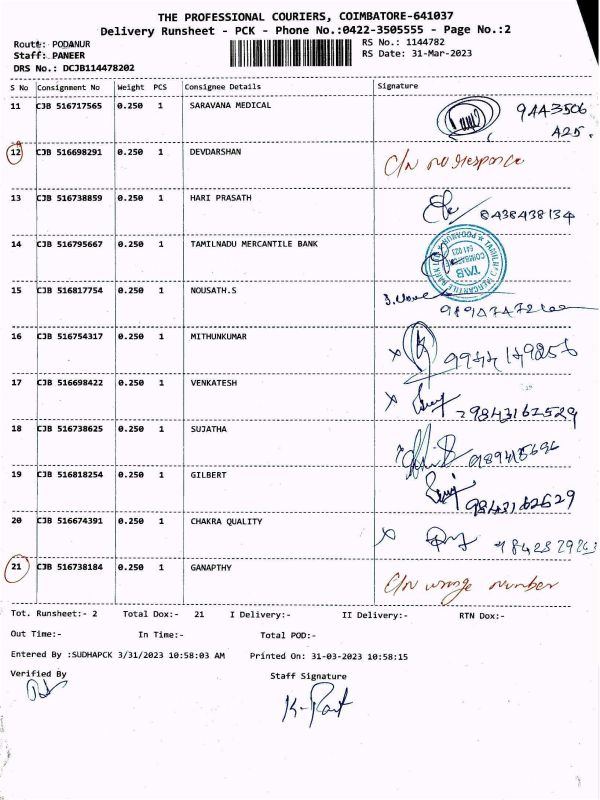 THE PROFESSIONAL COURIERS, COIMBATORE-641037
Delivery Runsheet - PCK - Phone No.:0422-3505555 - Page No.:2
Route: PODANUR RS No.: 1144782
Staff: PANEER RS Date: 31-Mar-2023
DRS No.: DCJB114478202
S No Consignment No Weight PCS Consignee Details Signature
11 CJB 516717565 0.250 1 SARAVANA MEDICAL 9443506
A25.
12 CJB 516698291 0.250 1 DEVDARSHAN C/N no response
13 CJB 516738859 0.250 1 HARI PRASATH 8438438134
14 CJB 516795667 0.250 1 TAMILNADU MERCANTILE BANK TMB COIMBATORE 641 023
15 CJB 516817754 0.250 1 NOUSATH.S
16 CJB 516754317 0.250 1 MITHUNKUMAR x
17 CJB 516698422 0.250 1 VENKATESH x 9843162529
18 CJB 516738625 0.250 1 SUJATHA
19 CJB 516818254 0.250 1 GILBERT 9843162629
20 CJB 516674391 0.250 1 CHAKRA QUALITY x
21 CJB 516738184 0.250 1 GANAPTHY C/N wrong number
Tot. Runsheet:- 2 Total Dox:- 21 I Delivery:- II Delivery:- RTN Dox:-
Out Time:- In Time:- Total POD:-
Entered By :SUDHAPCK 3/31/2023 10:58:03 AM Printed On: 31-03-2023 10:58:15
Verified By Staff Signature